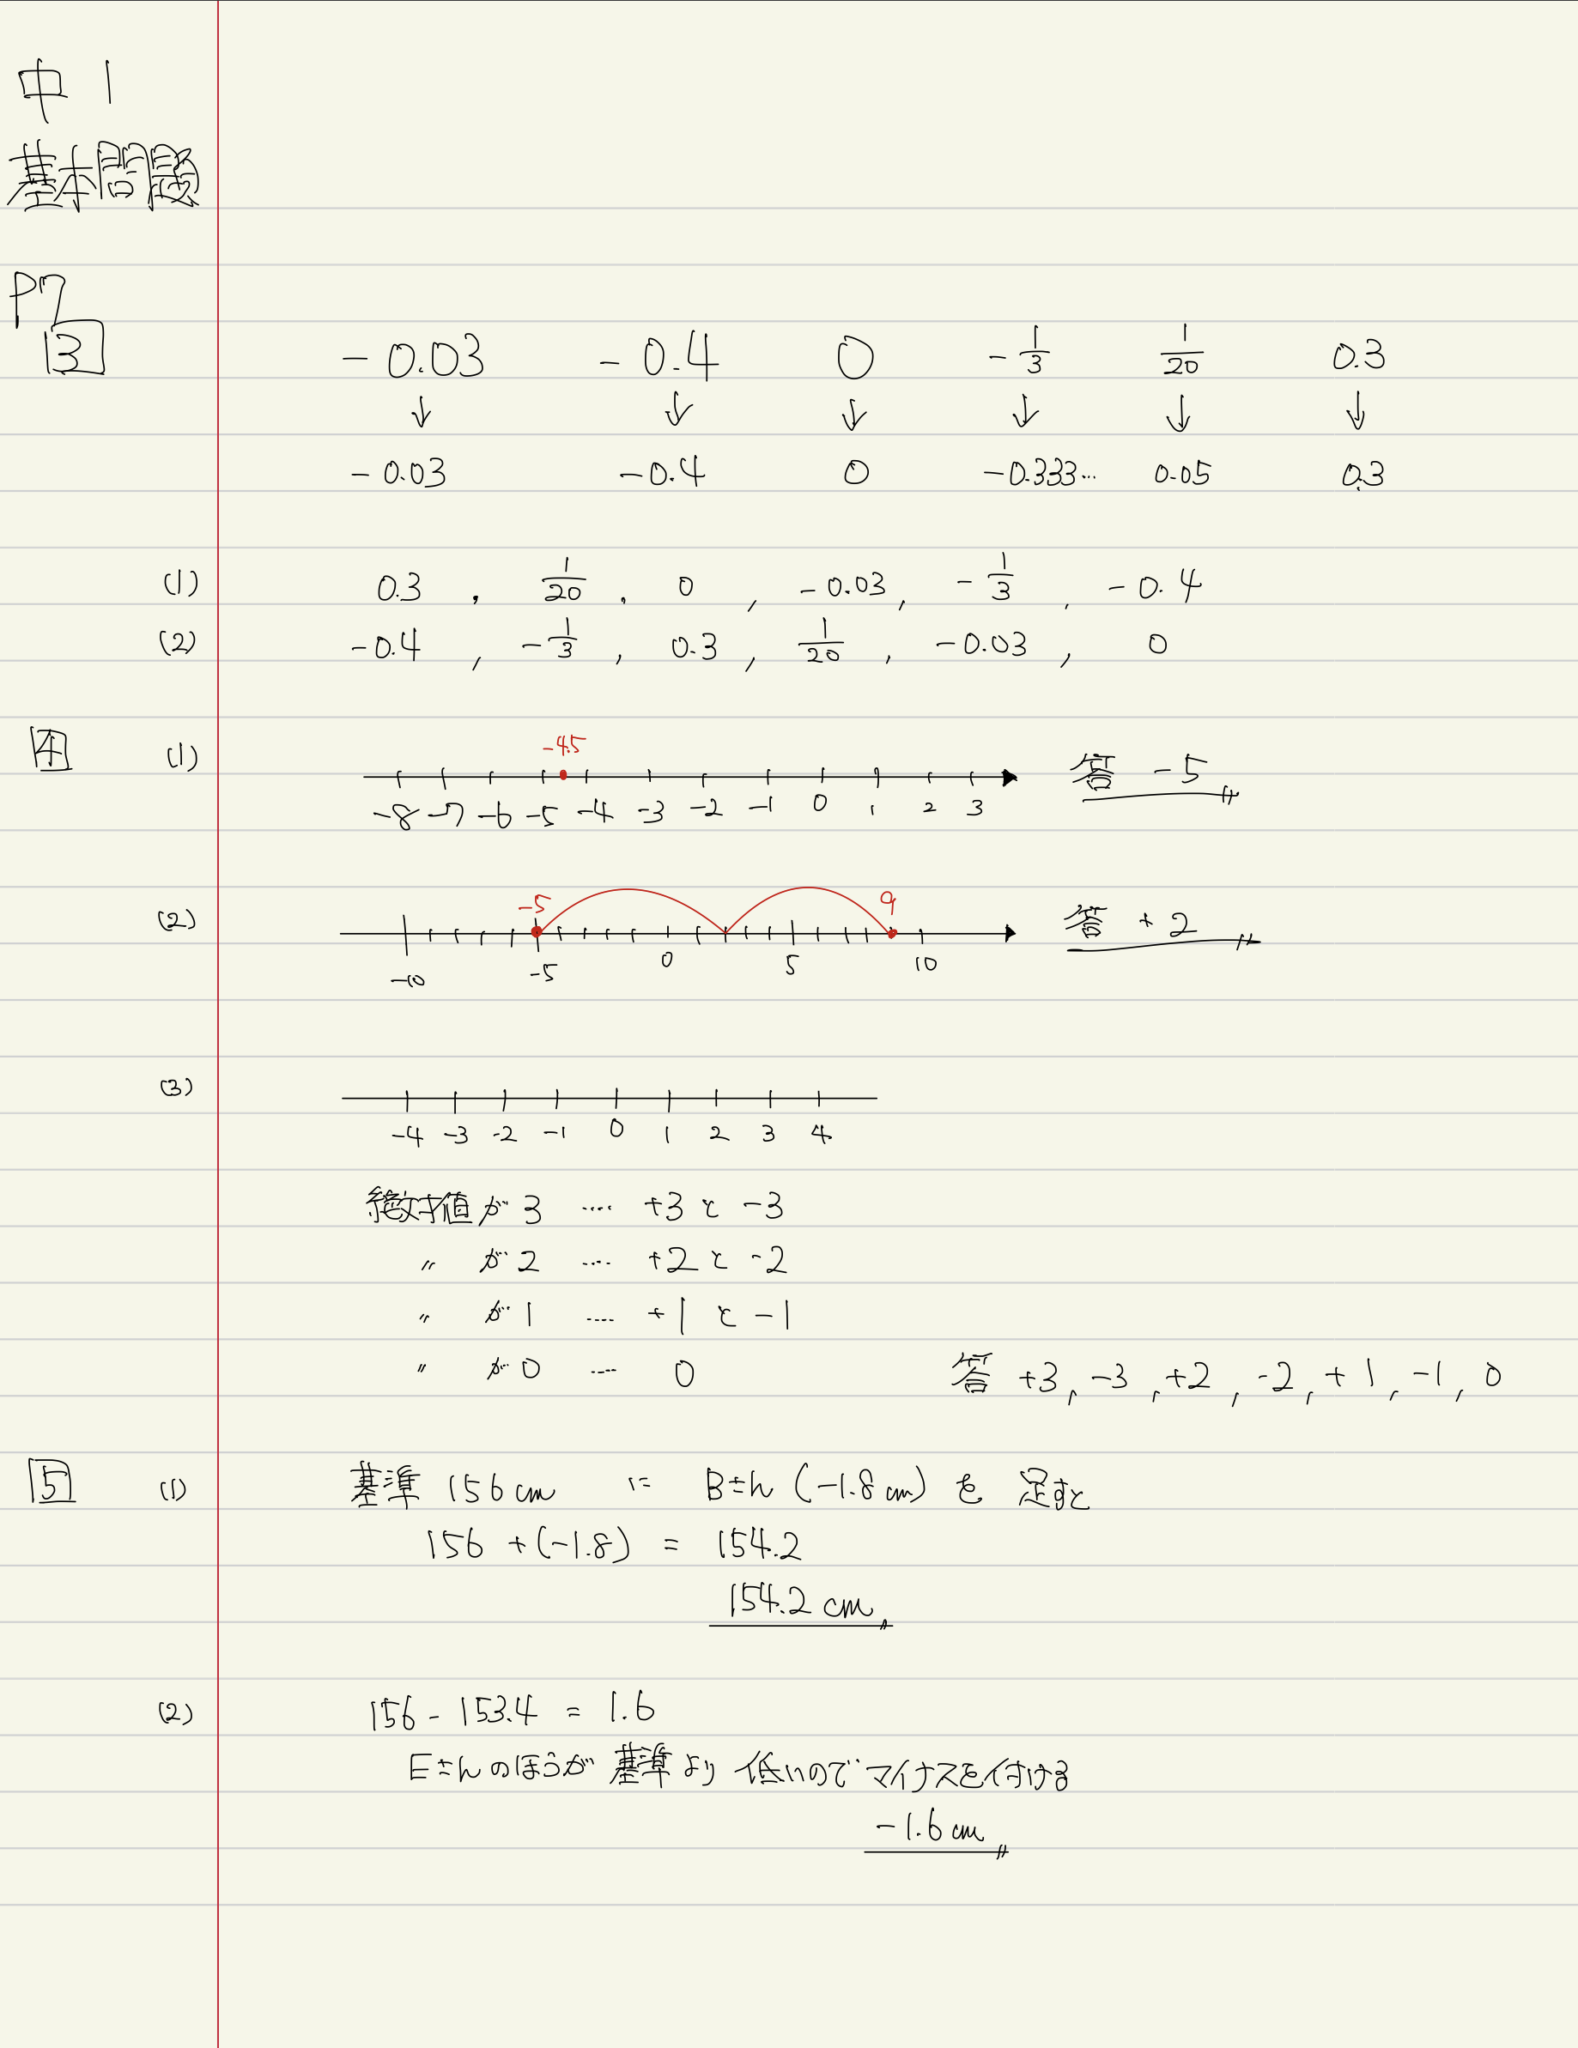 中1
基本問題
P7
3 -0.03 -0.4 0 -1/3 1/20 0.3
↓ ↓ ↓ ↓ ↓ ↓
-0.03 -0.4 0 -0.333… 0.05 0.3
(1) 0.3 , 1/20 , 0 , -0.03 , -1/3 , -0.4
(2) -0.4 , -1/3 , 0.3 , 1/20 , -0.03 , 0
-4.5
4 (1) 答 -5
-8 -7 -6 -5 -4 -3 -2 -1 0 1 2 3
-5 9
(2) 答 +2
-10 -5 0 5 10
(3)
-4 -3 -2 -1 0 1 2 3 4
絶対値が3 …. +3と-3
〃 が2 …. +2と-2
〃 が1 …. +1と-1
〃 が0 …. 0 答 +3, -3, +2, -2, +1, -1, 0
5 (1) 基準 156cm に Bさん (-1.8cm) を 足すと
156 + (-1.8) = 154.2
154.2cm
(2) 156 - 153.4 = 1.6
Eさんのほうが 基準より 低いので マイナスを付ける
-1.6cm